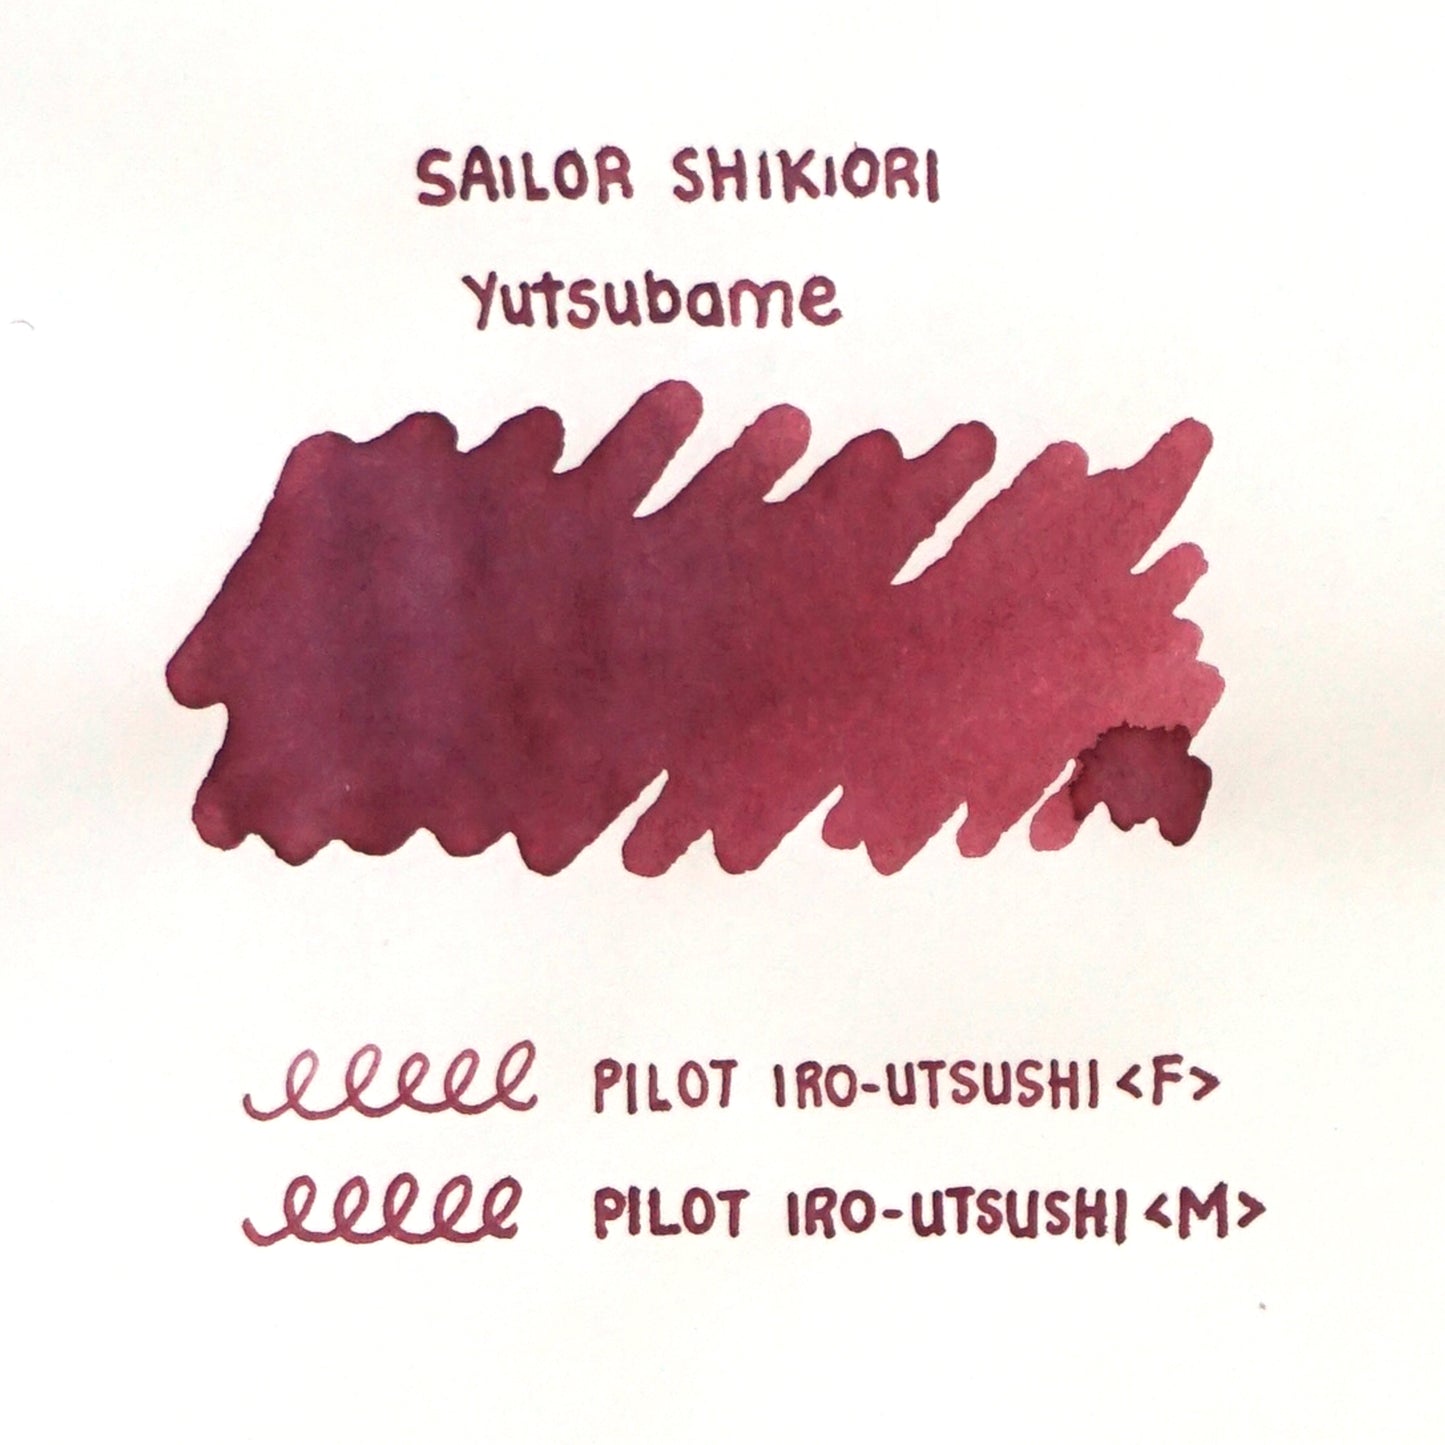 SAILOR SHIKIORI
Yutsubame
PILOT IRO-UTSUSHI <F>
PILOT IRO-UTSUSHI <M>